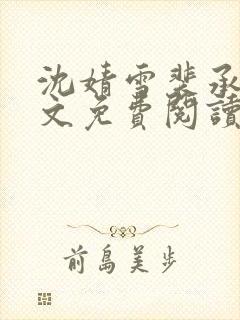 沈婧雪裴承
文免費閱讀
前島美步